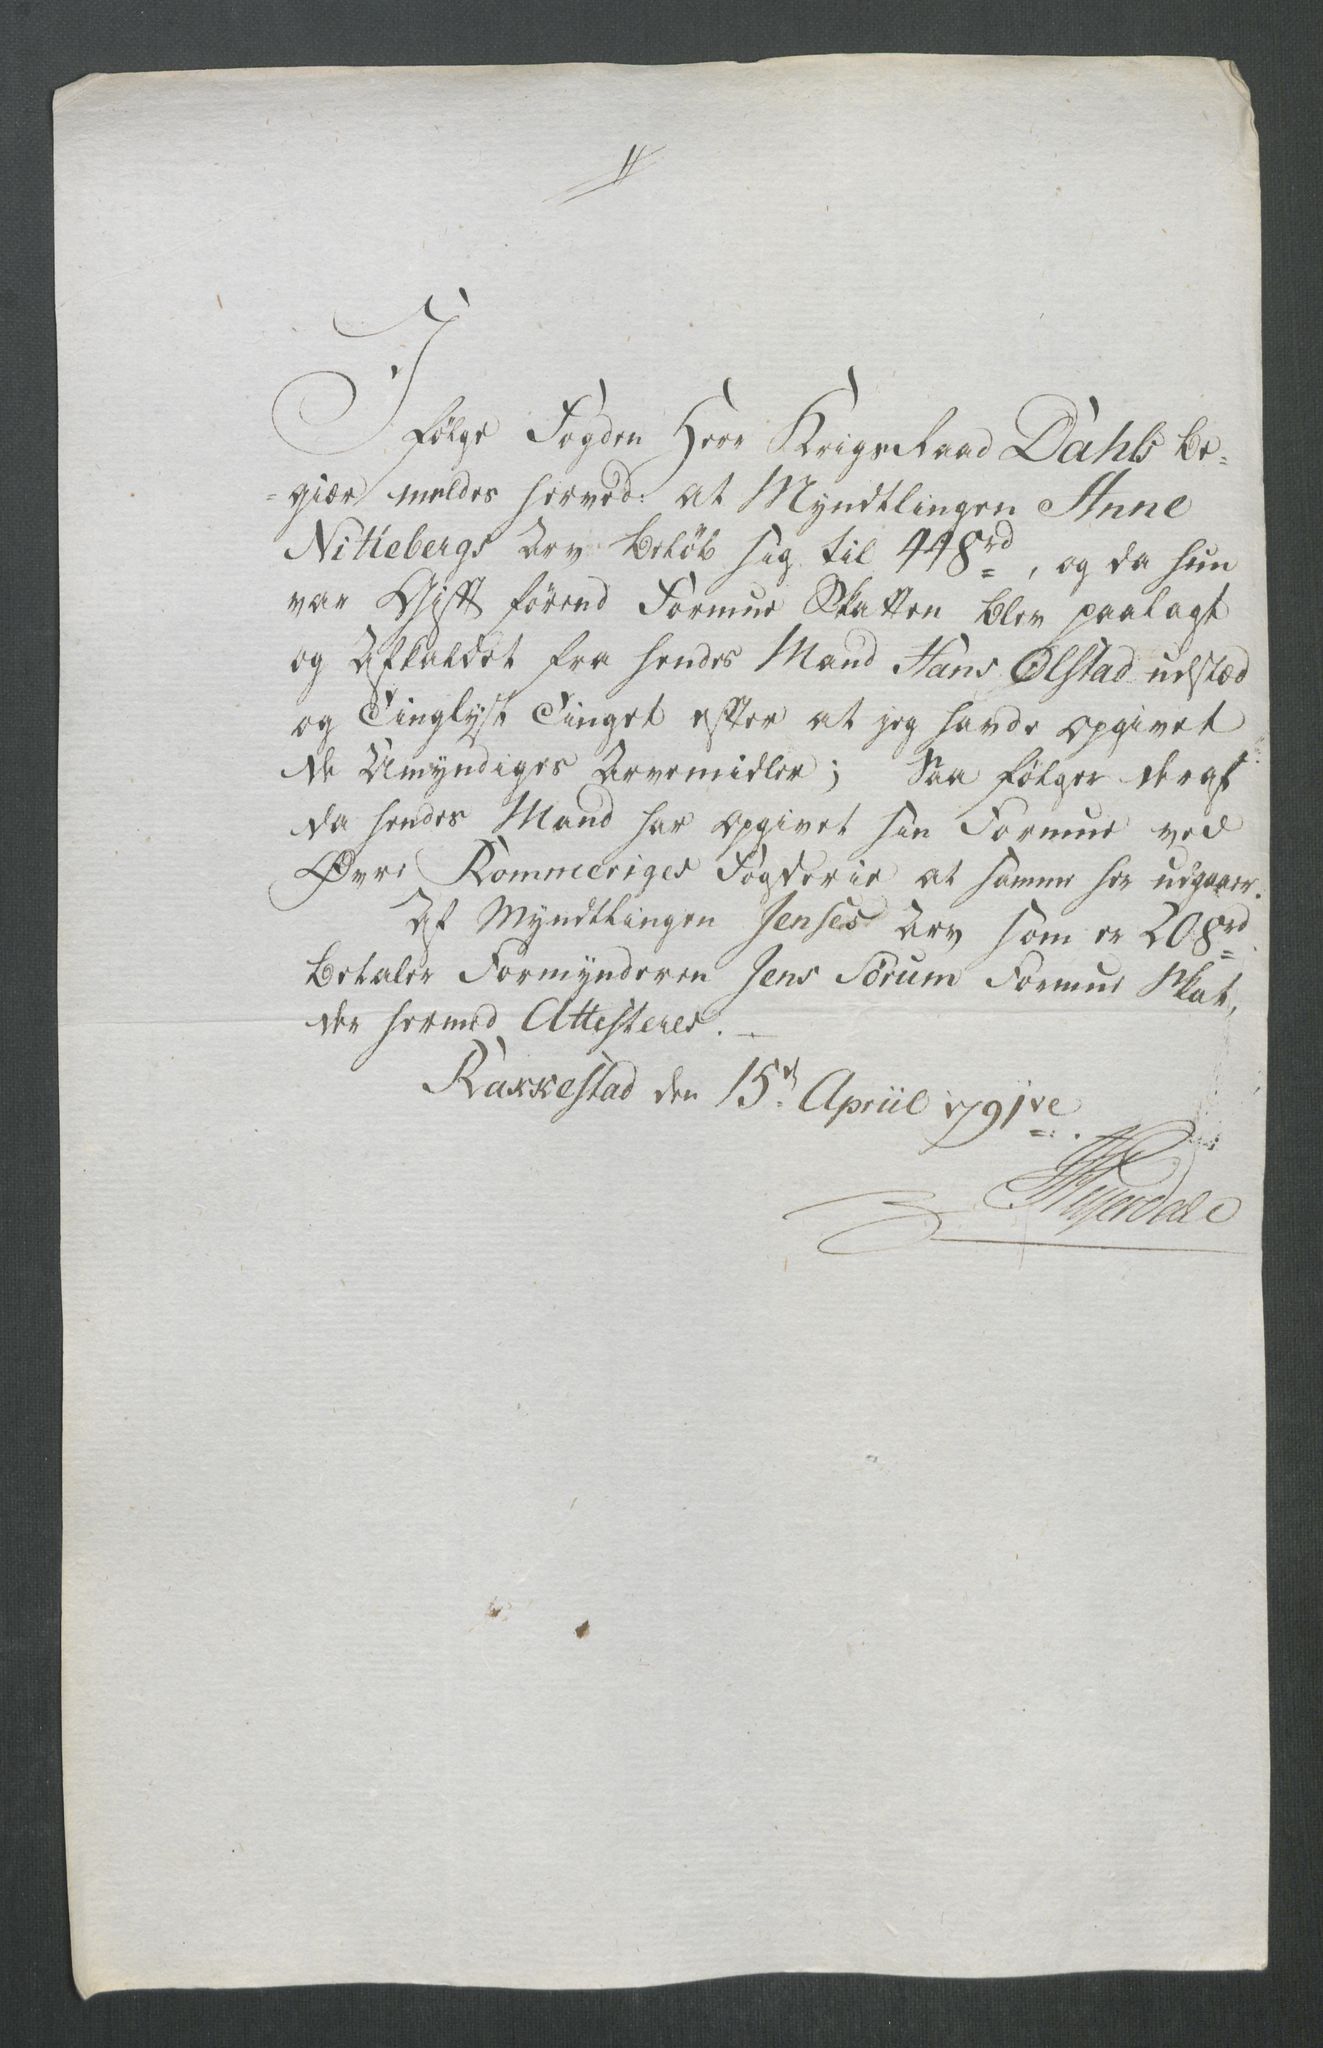 I
følge Fogden Herr Krigs Raad Dahls be-
-giær meldes herved: at Myndtlingen Anne
Nittebergs Arv beløb sig til 448rd, og da hun
var Gift førend Formue Skatten blev paalagt
og Afkaldet fra hendes Mand Hans Ølstad udstæd
og Tinglyst Tinget efter at jeg havde opgivet
de Umyndiges Arvemidler; Saa følger deraf
da hendes Mand har opgivet sin Formue ved
Øvre Rommeriges Fogderie at samme her udgaaer.
Af Myndtlingen Jenses Arv som er 208rd
betaler Formynderen Jens Sørum Formue Skat,
der hermed Attesteres.
Rakkestad den 15d Apriil 1791ve
Heyerdahl